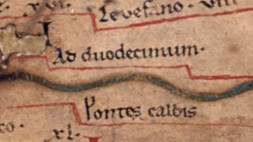 xvi. Levefano. viii
Ad duodecimum.
Pontes caldis
co. xi.